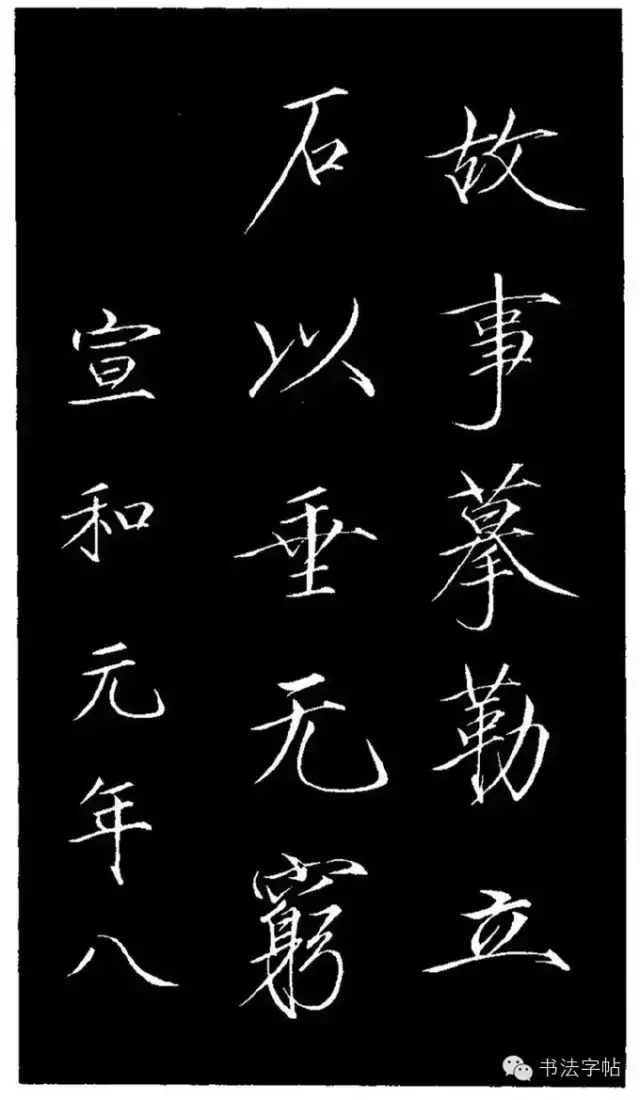 故事摹勒立
石以垂无窮
宣和元年八
书法字帖